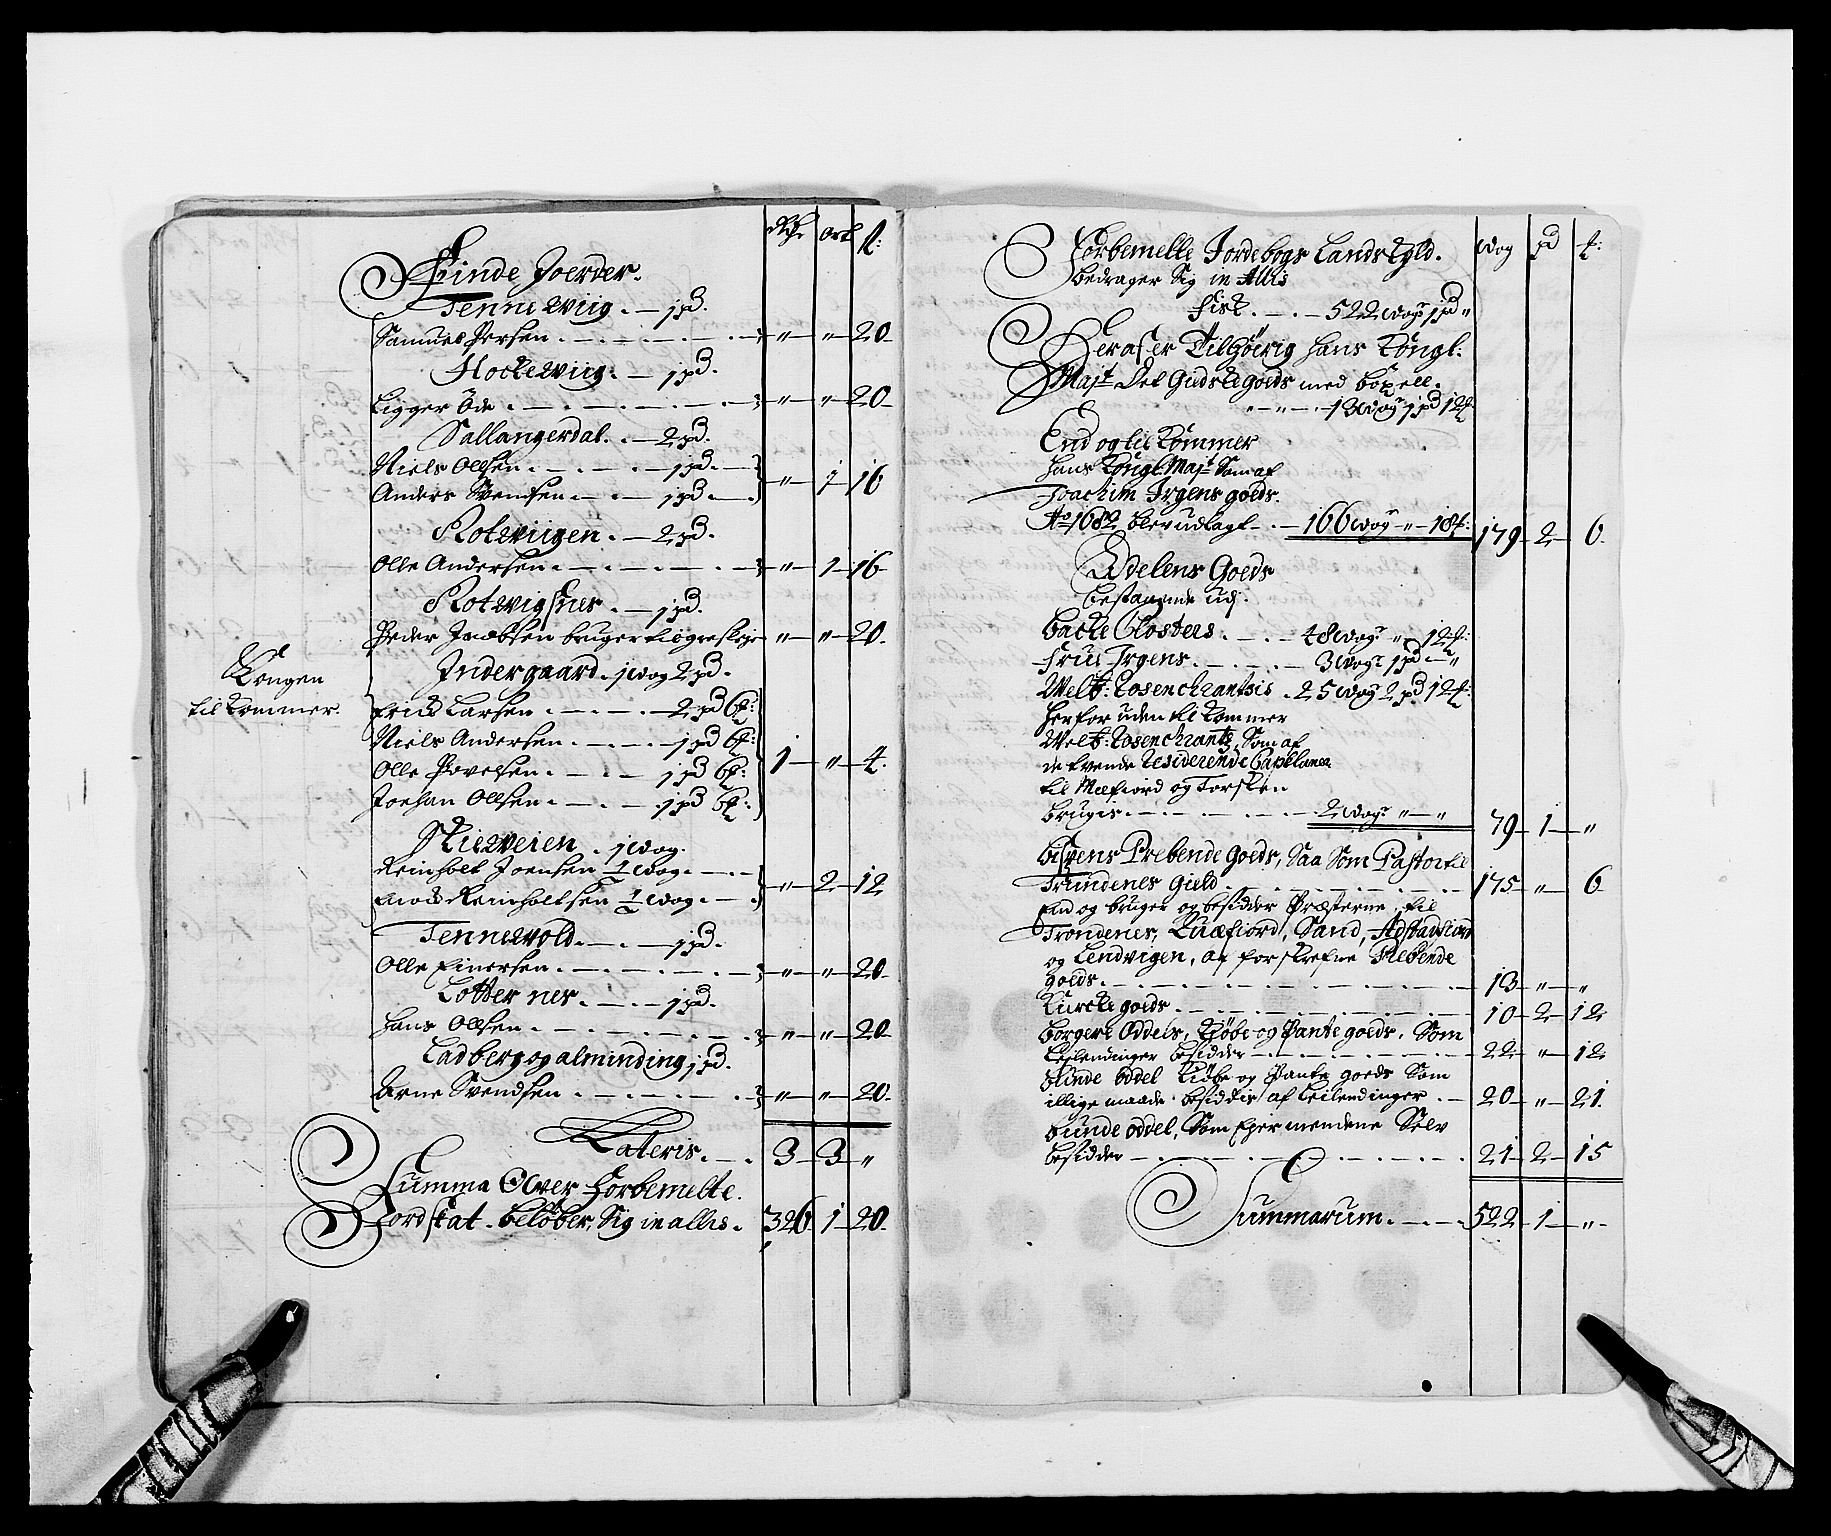 Rdr. ort ſ:
Finde Joerder.
Tennewiig. — 1 pd.
Samuel Persen . — . — . — " — " — 20
Hockewiig. — 1 pd.
Ligger Øde . — . — . — " — " — 20
Sallangerdal. — 2 pd.
Niels Olsen . — . — 1 pd. —
Anders Svendsen . — 1 pd. — " — 1 — 16
Rotwiigen. — 2 pd.
Olle Andersen . — . — . — " — 1 — 16
Rotwigsnes. — 1 pd.
Peder Jacobsen bruger " — " — 20
Indergaard. 1 wog 2 pd.
Kongen
til kommer.
Erich Larsen . — . — 2 pd 6 ſ:
Niels Andersen . — . — 1 pd 6 ſ:
Olle Povelsen . — . — 1 pd 6 ſ: 1 — " — 4
Joehan Olsen . — . — 1 pd 6 ſ:
Skieweien . 1 wog.
Reinholt Joensen ½ wog . — . —
Reinholtsen ½ wog . — " — 2 — 12
Tennewold . — . — 1 pd.
Olle Einersen . — . — . — " — " — 20
Lotter nes . — . — 1 pd.
Hans Olsen . — . — . — " — " — 20
Ladberg og alminding 1 pd.
Arne Svendsen . — . — . — " — " — 20
Lateris . — . 3 — 3 — "
Summa Ofver Forbemelte
Jordskat. beløber, Sig in allis. 326 — 1 — 20
wog pd ſ:
Forbemelle Jordebogs Landskyld.
bedrager Sig in Allis
Fisk . — . — 522 wog 1 pd "
Heraf er Tilhøerig Hans Kongl:
Majt Det Gudske goeds med boxell.
" — " — . 13 wog 1 pd 12 ſ
End og til kommer
Hans Kongl: Majt Som af
Joachim Irgens goeds.
Ao 1682 blev udlagt . — 166 wog " — 18 ſ: 179 — 2 — 6
Adelens Goeds
bestaaende udj.
Backe Closters . — . — 48 wog " 12 ſ:
Frue Irgens . — . — 3 wog 1 pd — "
Welb: Rosenchrantzis . 25 wog 2 pd 12 ſ:
Herforuden til kommer
Welb: Rosenchrantz, Som af
de tvende Residerende Capellaner
til Mefiord og Torsken
brugis . — . — . — 2 wog " — " 79 — 1 — "
bispens Prebende Goeds, Saa Som Pastor til
Trundenes Gield . — . — . — 175 — " — 6
End og bruger og besidder Præsterne, til
Trondenes, Quæfiord, Sand, Astadfiord
og Lendvigen, af forskrefne Prebende
goeds . — . — . — . — 13 — " — "
Kircke goeds . — . — . — 10 — 2 — 12
borgere Oddels, Kjøbe og Pante goeds, Som
Leilendinger besidder . — . — . — 22 — " — 12
bunde oddel Kiøbe og Pante goeds Som
illige maade besiddis af Leilendinger . — 20 — " — 21
bunde oddel, Som Ejermendene Selv
besidder . — . — . — . — 21 — 2 — 15
Summarum . — . — 522 — 1 — "